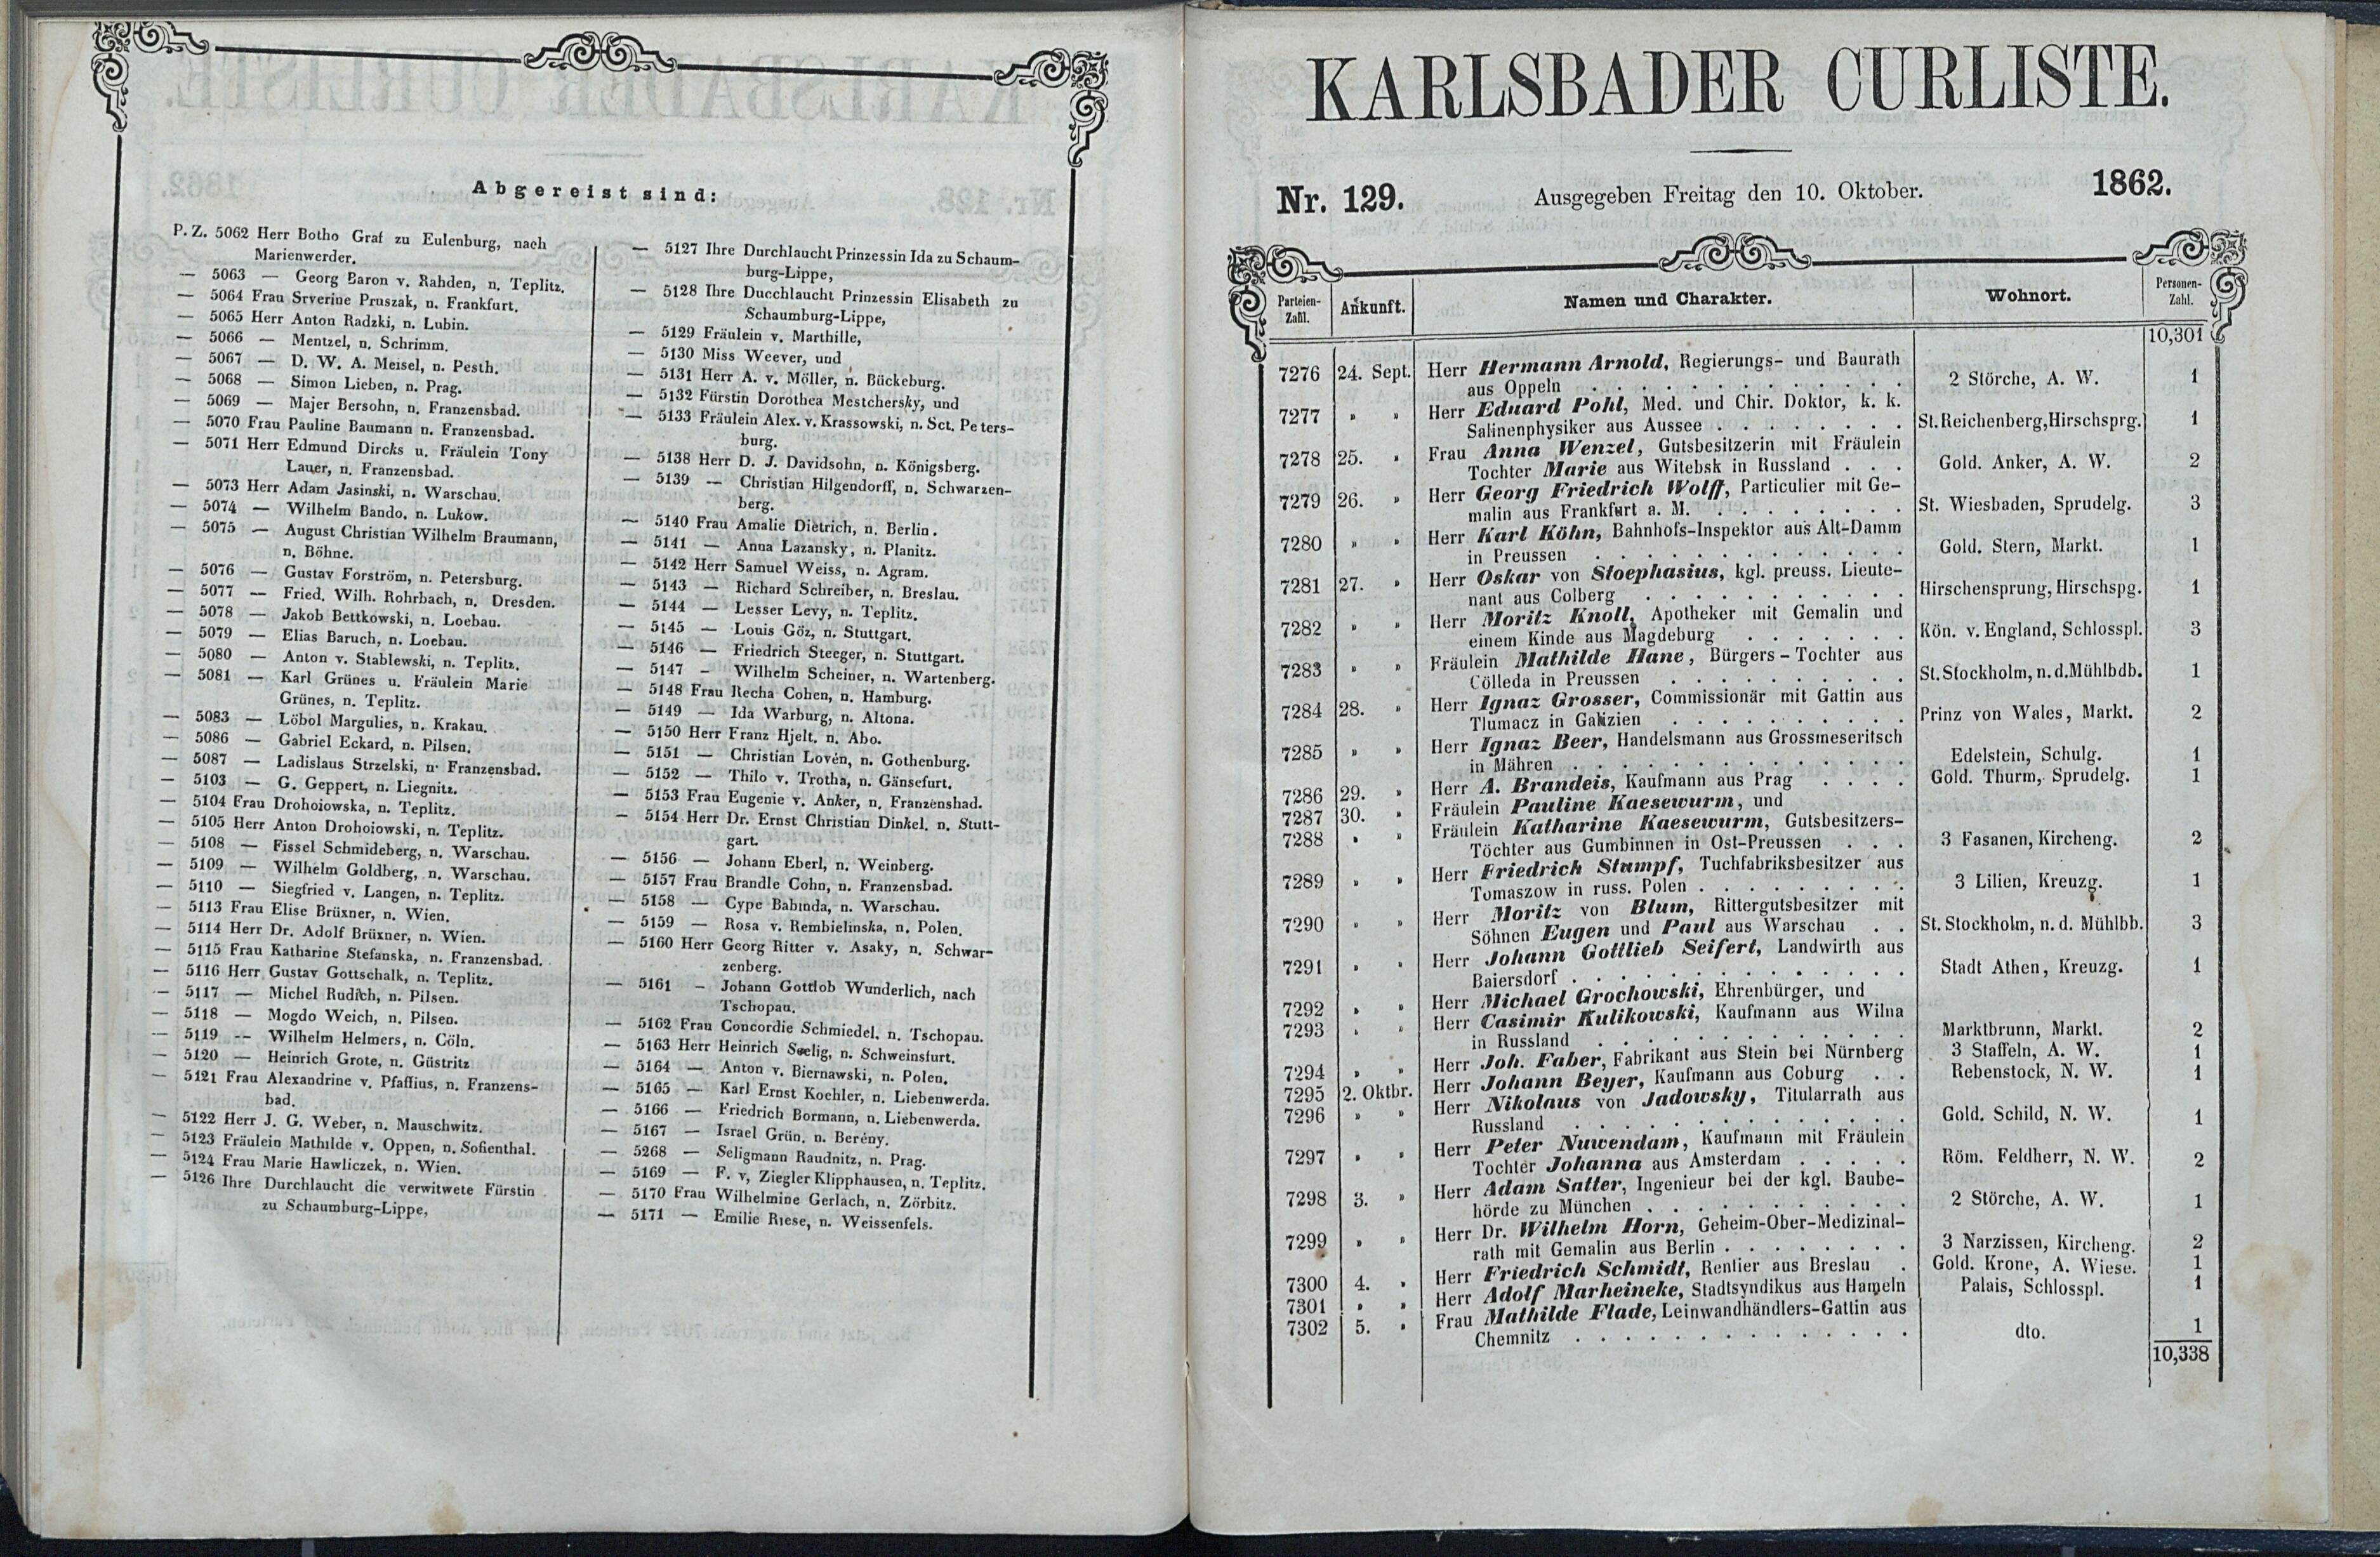 Abgereist sind:
P. Z. 5062 Herr Botho Graf zu Eulenburg, nach
Marienwerder.
— 5063 — Georg Baron v. Rahden, n. Teplitz.
— 5064 Frau Srverine Pruszak, n. Frankfurt.
— 5065 Herr Anton Radzki, n. Lubin.
— 5066 — Mentzel, n. Schrimm.
— 5067 — D. W. A. Meisel, n. Pesth.
— 5068 — Simon Lieben, n. Prag.
— 5069 — Majer Bersohn, n. Franzensbad.
— 5070 Frau Pauline Baumann n. Franzensbad.
— 5071 Herr Edmund Dircks u. Fräulein Tony
Lauer, n. Franzensbad.
— 5073 Herr Adam Jasinski, n. Warschau.
— 5074 — Wilhelm Bando, n. Lukow.
— 5075 — August Christian Wilhelm Braumann,
n. Böhne.
— 5076 — Gustav Forström, n. Petersburg.
— 5077 — Fried. Wilh. Rohrbach, n. Dresden.
— 5078 — Jakob Bettkowski, n. Loebau.
— 5079 — Elias Baruch, n. Loebau.
— 5080 — Anton v. Stablewski, n. Teplitz.
— 5081 — Karl Grünes u. Fräulein Marie
Grünes, n. Teplitz.
— 5083 — Löbol Margulies, n. Krakau.
— 5086 — Gabriel Eckard, n. Pilsen.
— 5087 — Ladislaus Strzelski, n· Franzensbad.
— 5103 — G. Geppert, n. Liegnitz.
— 5104 Frau Drohoiowska, n. Teplitz.
— 5105 Herr Anton Drohoiowski, n. Teplitz.
— 5108 — Fissel Schmideberg, n. Warschau.
— 5109 — Wilhelm Goldberg, n. Warschau.
— 5110 — Siegfried v. Langen, n. Teplitz.
— 5113 Frau Elise Brüxner, n. Wien.
— 5114 Herr Dr. Adolf Brüxner, n. Wien.
— 5115 Frau Katharine Stefanska, n. Franzensbad.
— 5116 Herr Gustav Gottschalk, n. Teplitz.
— 5117 — Michel Rudich, n. Pilsen.
— 5118 — Mogdo Weich, n. Pilsen.
— 5119 -- Wilhelm Helmers, n. Cöln.
— 5120 — Heinrich Grote, n. Güstritz
— 5121 Frau Alexandrine v. Pfaffius, n. Franzens-
bad.
— 5122 Herr J. G. Weber, n. Mauschwitz.
— 5123 Fräulein Mathilde v. Oppen, n. Sofienthal.
— 5124 Frau Marie Hawliczek, n. Wien.
— 5126 Ihre Durchlaucht die verwitwete Fürstin
zu Schaumburg-Lippe,
— 5127 Ihre Durchlaucht Prinzessin Ida zu Schaum-
burg-Lippe,
— 5128 Ihre Ducchlaucht Prinzessin Elisabeth zu
Schaumburg-Lippe,
— 5129 Fräulein v. Marthille,
— 5130 Miss Weever, und
— 5131 Herr A. v. Möller, n. Bückeburg.
— 5132 Fürstin Dorothea Mestchersky, und
— 5133 Fräulein Alex. v. Krassowski, n. Sct. Peters-
burg.
— 5138 Herr D. J. Davidsohn, n. Königsberg.
— 5139 — Christian Hilgendorff, n. Schwarzen-
berg.
— 5140 Frau Amalie Dietrich, n. Berlin.
— 5141 — Anna Lazansky, n. Planitz.
— 5142 Herr Samuel Weiss, n. Agram.
— 5143 — Richard Schreiber, n. Breslau.
— 5144 — Lesser Levy, n. Teplitz.
— 5145 — Louis Göz, n. Stuttgart.
— 5146 — Friedrich Steeger, n. Stuttgart.
— 5147 - Wilhelm Scheiner, n. Wartenberg.
— 5148 Frau Recha Cohen, n. Hamburg.
— 5149 — Ida Warburg, n. Altona.
— 5150 Herr Franz Hjelt, n. Abo.
— 5151 — Christian Lovén, n. Gothenburg.
— 5152 — Thilo v. Trotha, n. Gänsefurt.
— 5153 Frau Eugenie v. Anker, n. Franzensbad.
— 5154 Herr Dr. Ernst Christian Dinkel, n. Stutt-
gart.
— 5156 — Johann Eberl, n. Weinberg.
— 5157 Frau Brandle Cohn, n. Franzensbad.
— 5158 — Cype Babinda, n. Warschau.
— 5159 — Rosa v. Rembielinska, n. Polen.
— 5160 Herr Georg Ritter v. Asaky, n. Schwar-
zenberg.
— 5161 - Johann Gottlob Wunderlich, nach
Tschopau.
— 5162 Frau Concordie Schmiedel, n. Tschopau.
— 5163 Herr Heinrich Seelig, n. Schweinsfurt.
— 5164 — Anton v. Biernawski, n. Polen.
— 5165 — Karl Ernst Koehler, n. Liebenwerda.
— 5166 — Friedrich Bormann, n. Liebenwerda.
— 5167 — Israel Grün, n. Berény.
— 5268 — Seligmann Raudnitz, n. Prag.
— 5169 — F. v, Ziegler Klipphausen, n. Teplitz.
— 5170 Frau Wilhelmine Gerlach, n. Zörbitz.
— 5171 — Emilie Riese, n. Weissenfels.
KARLSBADER CURLISTE.
Nr. 129. Ausgegeben Freitag den 10. Oktober. 1862.
Parteien-Zahl. Ankunft. Namen und Charakter. Wohnort. Personen-Zahl.
10,301
7276 24. Sept. Herr Hermann Arnold, Regierungs- und Baurath
aus Oppeln . . . 2 Störche, A. W. 1
7277 » » Herr Eduard Pohl, Med. und Chir. Doktor, k. k.
Salinenphysiker aus Aussee . . . St. Reichenberg, Hirschsprg. 1
7278 25. » Frau Anna Wenzel, Gutsbesitzerin mit Fräulein
Tochter Marie aus Witebsk in Russland . . . Gold. Anker, A. W. 2
7279 26. » Herr Georg Friedrich Wolff, Particulier mit Ge-
malin aus Frankfurt a. M. . . . St. Wiesbaden, Sprudelg. 3
7280 » » Herr Karl Köhn, Bahnhofs-Inspektor aus Alt-Damm
in Preussen . . . Gold. Stern, Markt. 1
7281 27. » Herr Oskar von Stoephasius, kgl. preuss. Lieute-
nant aus Colberg . . . Hirschensprung, Hirschspg. 1
7282 » » Herr Moritz Knoll, Apotheker mit Gemalin und
einem Kinde aus Magdeburg . . . Kön. v. England, Schlosspl. 3
7283 » » Fräulein Mathilde Hane, Bürgers-Tochter aus
Cölleda in Preussen . . . St. Stockholm, n. d. Mühlbdb. 1
7284 28. » Herr Ignaz Grosser, Commissionär mit Gattin aus
Tlumacz in Galizien . . . Prinz von Wales, Markt. 2
7285 » » Herr Ignaz Beer, Handelsmann aus Grossmeseritsch
in Mähren . . . Edelstein, Schulg. 1
7286 29. » Herr A. Brandeis, Kaufmann aus Prag . . . Gold. Thurm, Sprudelg. 1
7287 30. » Fräulein Pauline Kaesewurm, und
7288 » » Fräulein Katharine Kaesewurm, Gutsbesitzers-
Töchter aus Gumbinnen in Ost-Preussen . . . 3 Fasanen, Kircheng. 2
7289 » » Herr Friedrich Stumpf, Tuchfabriksbesitzer aus
Tomaszow in russ. Polen . . . 3 Lilien, Kreuzg. 1
7290 » » Herr Moritz von Blum, Rittergutsbesitzer mit
Söhnen Eugen und Paul aus Warschau . . St. Stockholm, n. d. Mühlbb. 3
7291 » » Herr Johann Gottlieb Seifert, Landwirth aus
Baiersdorf . . . Stadt Athen, Kreuzg. 1
7292 » » Herr Michael Grochowski, Ehrenbürger, und
7293 » » Herr Casimir Kulikowski, Kaufmann aus Wilna
in Russland . . . Marktbrunn, Markt. 2
7294 » » Herr Joh. Faber, Fabrikant aus Stein bei Nürnberg 3 Staffeln, A. W. 1
7295 2. Oktbr. Herr Johann Beyer, Kaufmann aus Coburg . . Rebenstock, N. W. 1
7296 » » Herr Nikolaus von Jadowsky, Titularrath aus
Russland . . . Gold. Schild, N. W. 1
7297 » » Herr Peter Nuwendam, Kaufmann mit Fräulein
Tochter Johanna aus Amsterdam . . . Röm. Feldherr, N. W. 2
7298 3. » Herr Adam Satter, Ingenieur bei der kgl. Baube-
hörde zu München . . . 2 Störche, A. W. 1
7299 » » Herr Dr. Wilhelm Horn, Geheim-Ober-Medizinal-
rath mit Gemalin aus Berlin . . . 3 Narzissen, Kircheng. 2
7300 4. » Herr Friedrich Schmidt, Rentier aus Breslau . Gold. Krone, A. Wiese. 1
7301 » » Herr Adolf Marheineke, Stadtsyndikus aus Hameln Palais, Schlosspl. 1
7302 5. » Frau Mathilde Flade, Leinwandhändlers-Gattin aus
Chemnitz . . . dto. 1
10,338